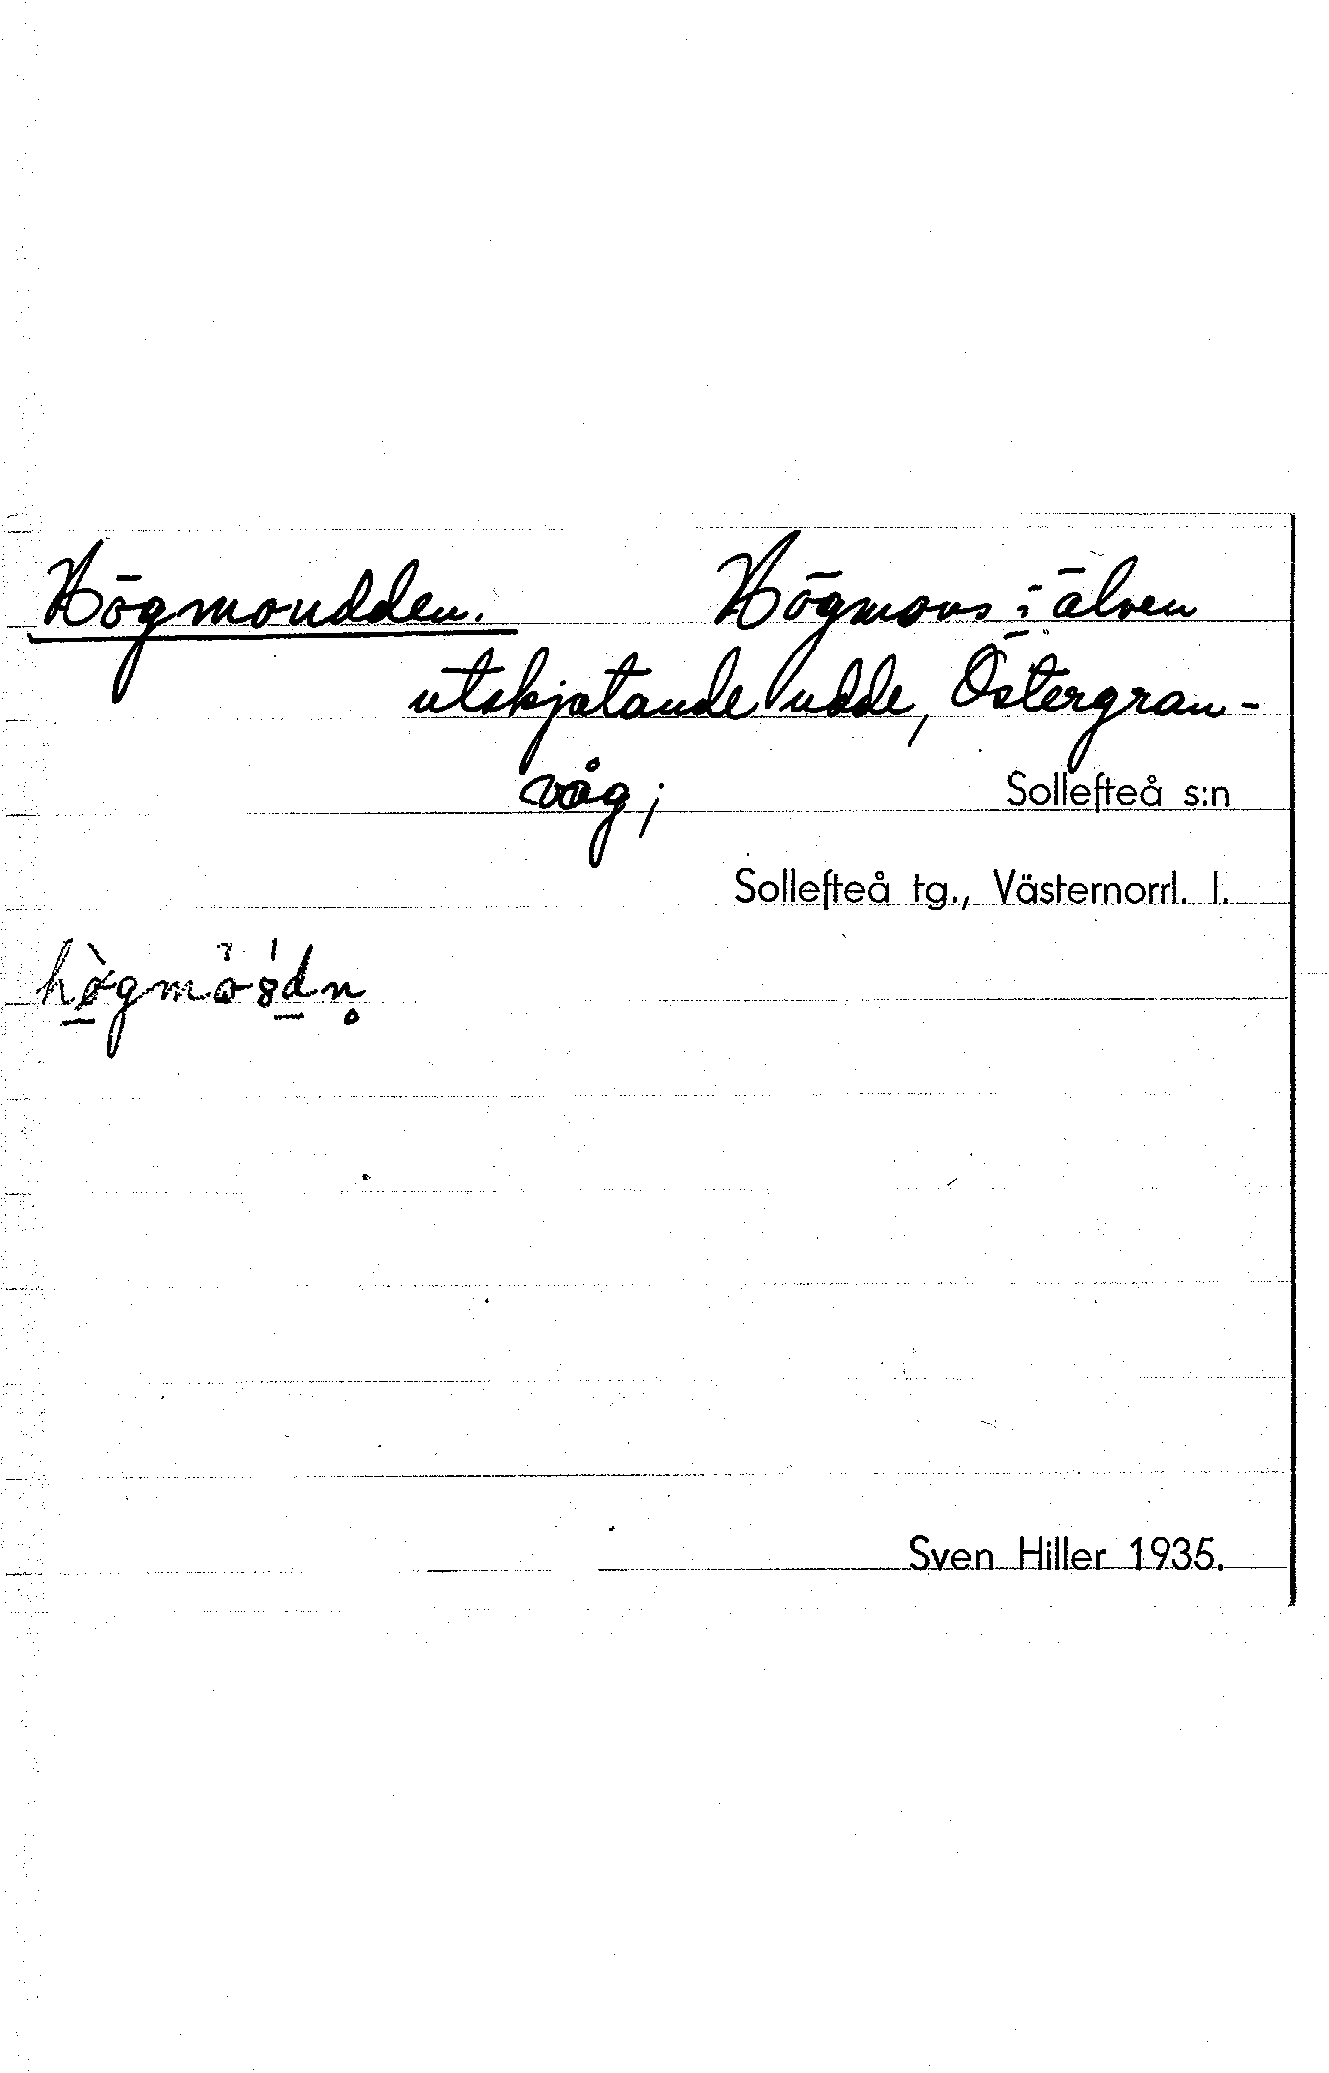 Högmoudden. Högmons i älven
utskjutande udde, Östergran-
våg; Sollefteå s:n
Sollefteå tg., Västernorrl. l.
Sven Hiller 1935.